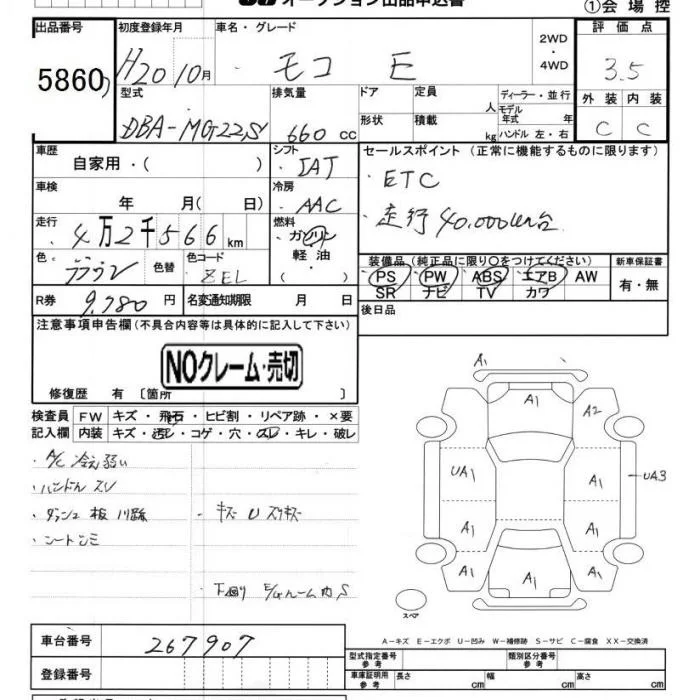 オークション出品申込書
①会場控
出品番号 初度登録年月 車名・グレード 2WD・4WD 評価点
5860 H20 10月 モコ E 3.5
型式 排気量 ドア 定員 人 ディーラー・並行 外装 内装
DBA-MG22S 660 cc 形状 積載 kg モデル年式 年 ハンドル 左・右 C C
車歴 シフト セールスポイント(正常に機能するものに限ります)
自家用・( ) IAT ・ETC
車検 年 月( 日) 冷房 AAC ・走行40,000km台
走行 4万2千566km 燃料 ガソリン・軽油・( )
色 ブラウン 色替 色コード ZEL
装備品(純正品に限り○をつけてください) 新車保証書
PS PW ABS エアB AW 有・無
SR ナビ TV カワ
R券 9,780円 名変通知期限 月 日
後日品
注意事項申告欄(不具合内容等は具体的に記入して下さい)
NOクレーム・売切
修復歴 有 [箇所 ]
検査員 FW キズ・飛石・ヒビ割・リペア跡・×要
記入欄 内装 キズ・透レ・コゲ・穴・スレ・キレ・破レ
・A/C 冷え弱い
・ハンドルスレ
・ダッシュ板 ・キズ U スリキズ
・シートシミ
・下廻り 内 S
A1
A1 A2
UA1 A1 UA3
A1 A1
A1 A1 A1
スペア
A-キズ E-エクボ U-凹み W-補修跡 S-サビ C-腐食 XX-交換済
車台番号 267907
型式指定番号 参考 類別区分番号 参考
登録番号 車庫証明用 参考 長さ cm 幅 cm 高さ cm